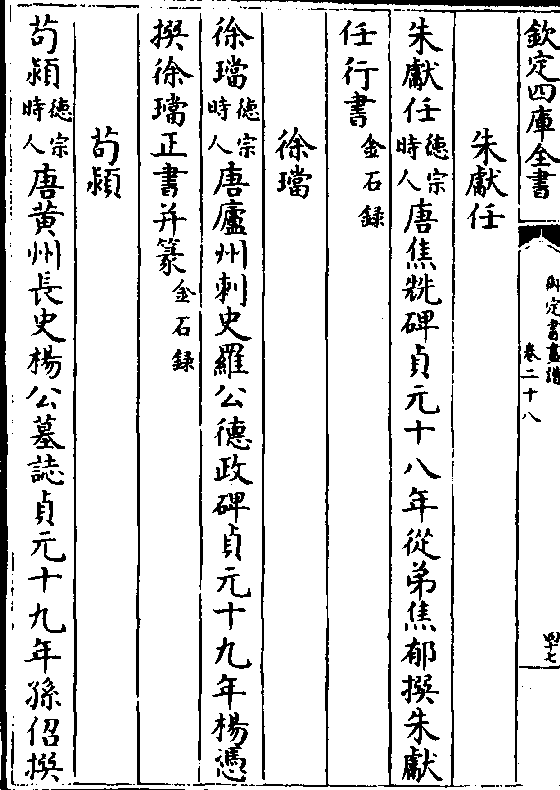 欽定四庫全書
御定書畫譜
卷二十八
四十七
朱獻任
朱獻任德宗時人唐焦兟碑貞元十八年從弟焦郁撰朱獻
任行書金石録
徐璫
徐璫德宗時人唐廬州刺史羅公德政碑貞元十九年楊憑
撰徐璫正書并篆金石録
荀潁
荀潁德宗時人唐黄州長史楊公墓誌貞元十九年孫侶撰